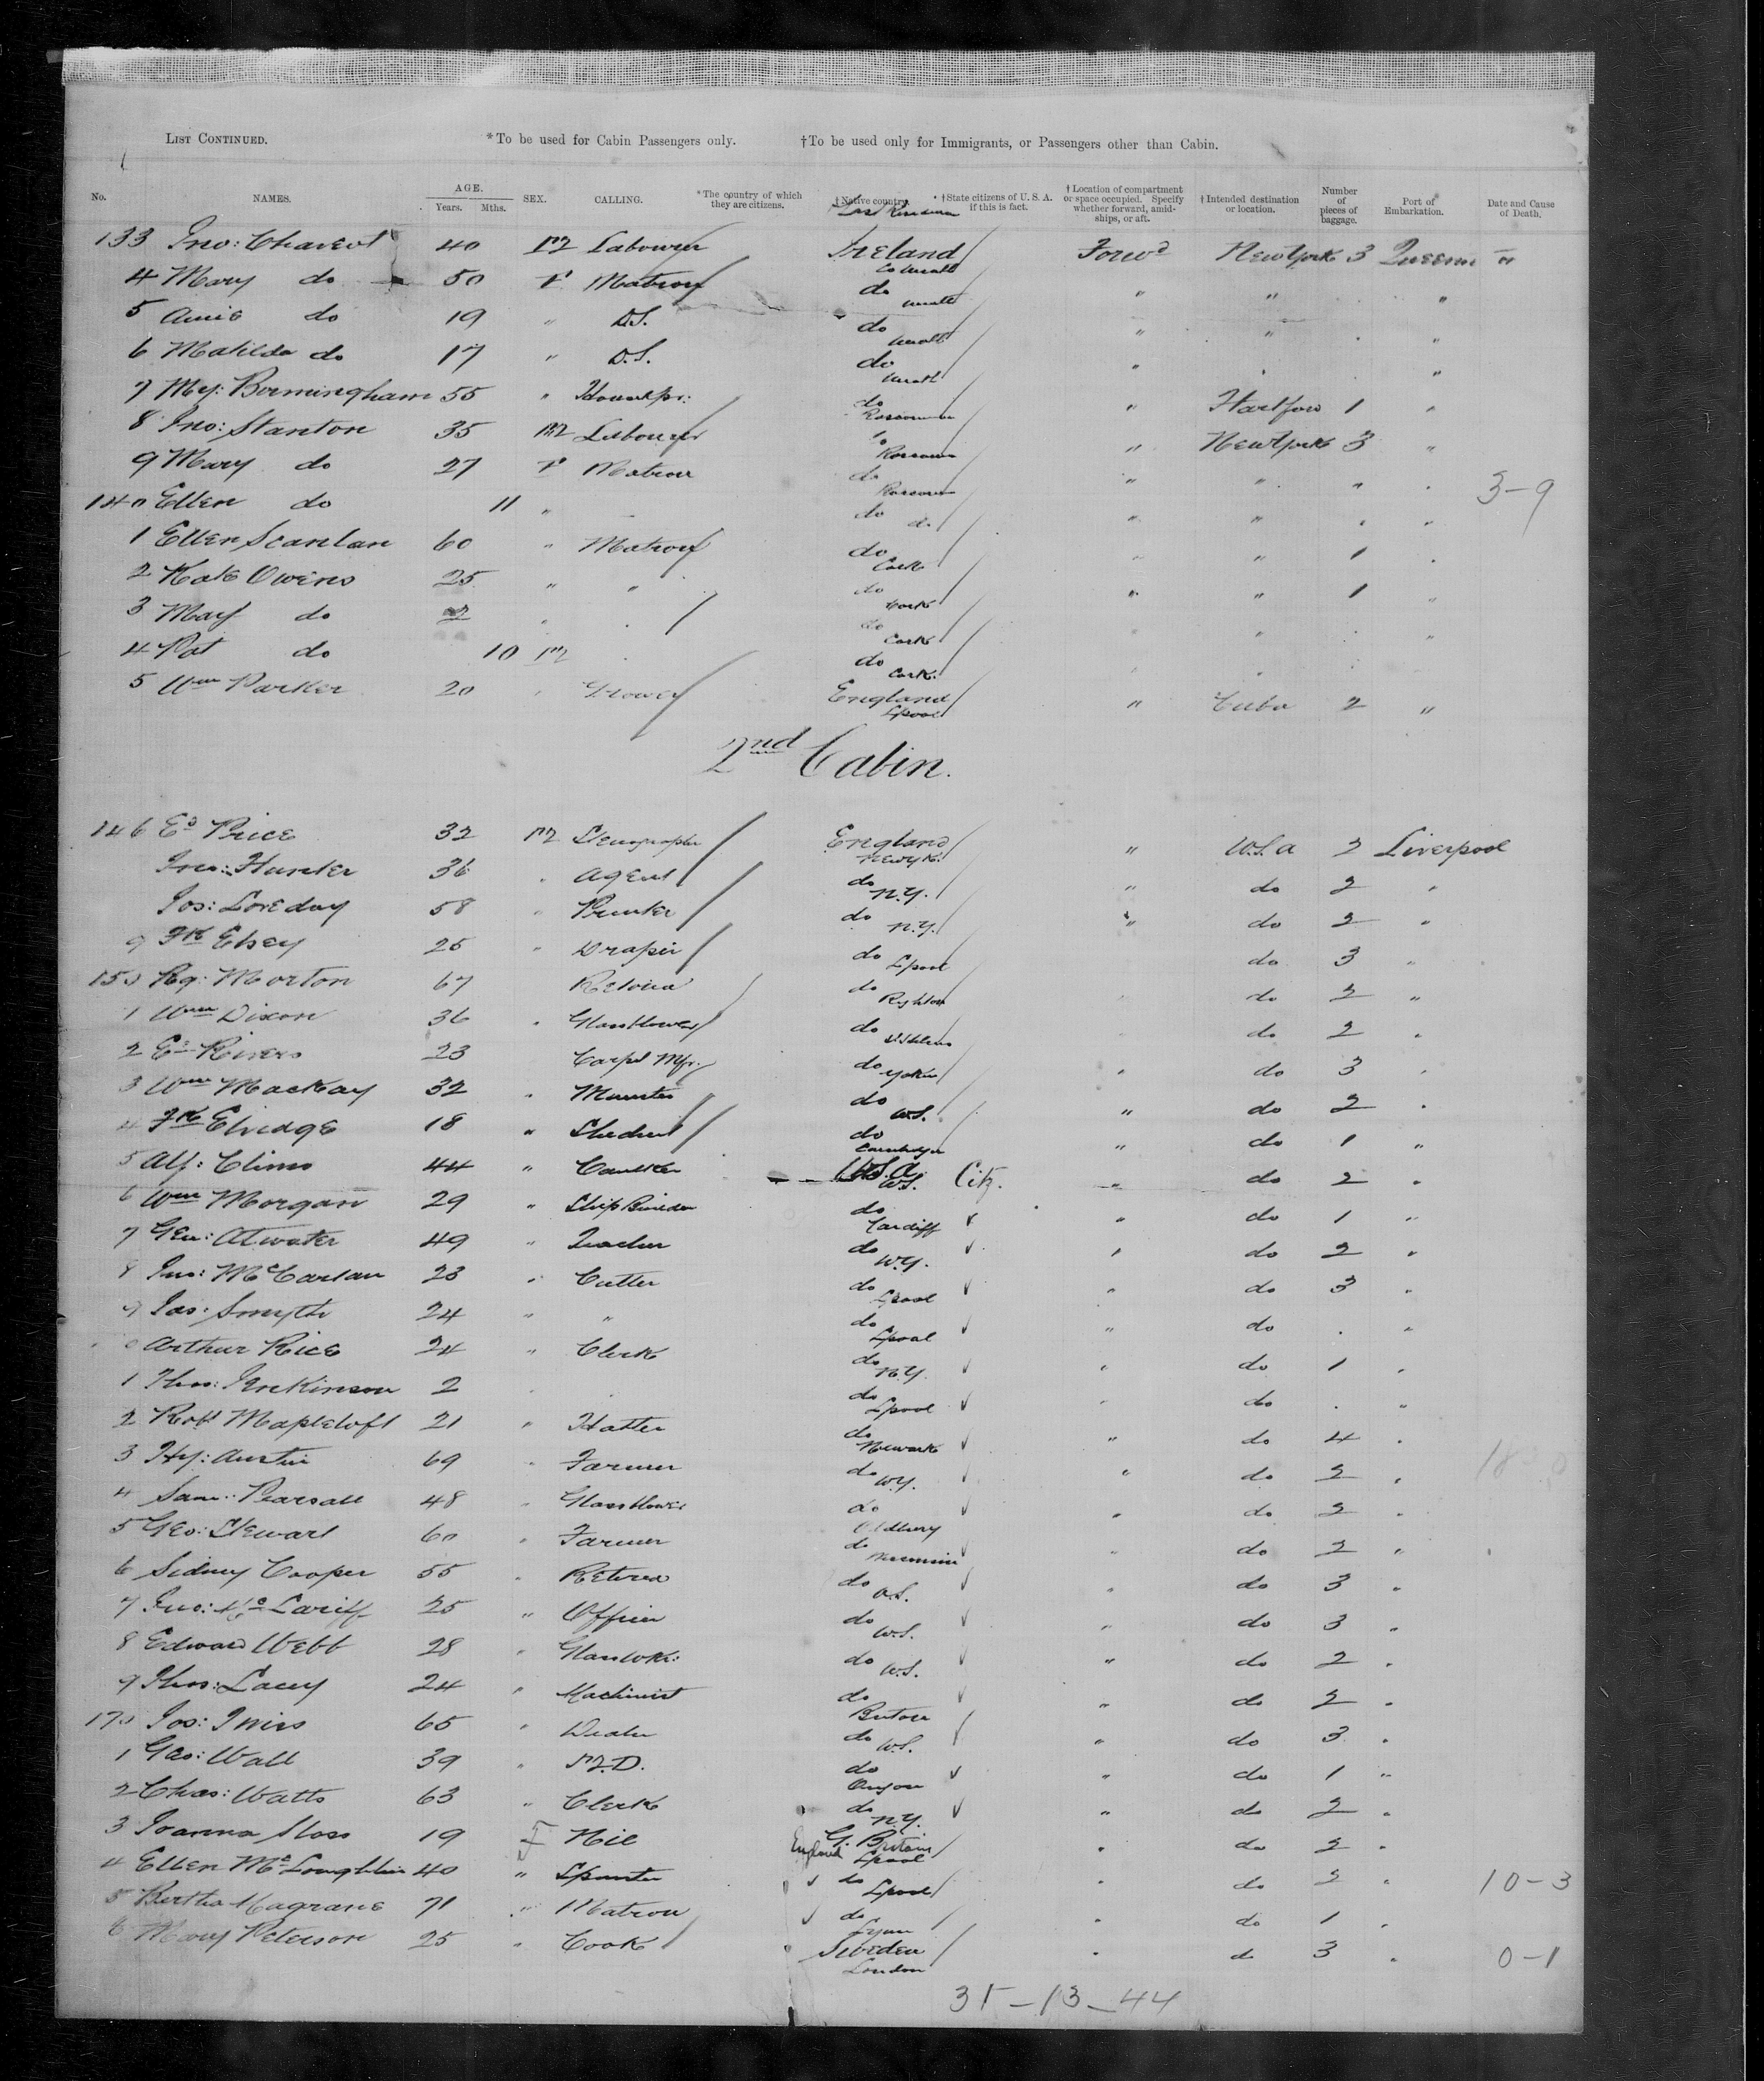 LIST CONTINUED. *To be used for Cabin Passengers only. †To be used only for Immigrants, or Passengers other than Cabin.
No. NAMES. AGE. Years. Mths. SEX. CALLING. *The country of which they are citizens. †Native country. *†State citizens of U. S. A. if this is fact. †Location of compartment or space occupied. Specify whether forward, amidships, or aft. †Intended destination or location. Number of pieces of baggage. Port of Embarkation. Date and Cause of Death.
133 Jno: 40 M Labourer Ireland Forwd New York 3
4 Mary do 50 F Matron do " " "
5 Amie do 19 " D.S. do " " "
6 Matilda do 17 " D.S. do " "
7 My: Bermingham 55 " Housekpr: do " Hartford 1 "
8 Jno: Stanton 35 M Labourer " New York 3 "
9 Mary do 27 F Matron do " " "
140 Ellen do 11 " do do " " 3-9
1 Ellen Scanlan 60 " Matron do Cork " " 1
2 Kate Owens 25 " " do Cork " " 1 "
3 Mary do 2 " do Cork " "
4 Pat do 10 M do Cork
5 Wm Parker 20 England Lpool " Cuba 2 "
2nd Cabin.
146 Ed Price 32 M Stenographer England New Yk. " U.S.A 3 Liverpool
Jno: Hunter 36 " Agent do N.Y. " do 2 "
Jos: Loveday 58 " Printer do N.Y. " do 2 "
9 Frk Elsey 25 " Draper do Lpool do 3 "
150 Morton 67 Retired do do 2 "
1 Wm Dixon 36 " Glassblower do do 2 "
2 Ed Rivers 23 Carpt Mfr. do do 3
3 Wm MacKay 32 " Minister do U.S. " do 2 "
4 Frk Elvidge 18 " Student do " do 1 "
5 Alf: Climo 44 " Caulker U.S.A. U.S. Citz. " do 2 "
6 Wm Morgan 29 " Ship Builder do Cardiff " do 1 "
7 Geo: Atwater 49 " Teacher do N.Y. " do 2 "
8 Jno: McCarlan 23 " Cutter do Lpool " do 3 "
9 Jas: Smyth 24 " " do Lpool " do "
0 Arthur Rice 24 " Clerk do N.Y. " do 1 "
1 Thos: Jenkinson 2 do Lpool " do "
2 Robt Mapletoft 21 " Hatter do Newark " do 4 "
3 Hy: Austin 69 " Farmer do N.Y. " do 2 "
4 Saml: Pearsall 48 " Glassblower do Oldbury " do 2 "
5 Geo: Stewart 60 " Farmer do Wisconsin " do 2 "
6 Sidney Cooper 55 " Retired do U.S. " do 3 "
7 Jno: 25 " Officer do U.S. " do 3 "
8 Edward Webb 28 " Glasswkr: do U.S. " do 2 "
9 Thos: Lacey 24 " Machinist do " do 2 "
170 Jos: 65 " Dealer do U.S. " do 3 "
1 Geo: Wall 39 " M.D. do " do 1 "
2 Chas: Watts 63 " Clerk do N.Y. " do 2 "
3 Joanna 19 F Nil England G. Britain Lpool " do 2 "
4 Ellen McLoughlin 40 " Spinster do Lpool " do 2 " 10-3
5 Bertha Magrane 71 " Matron do Lynn " do 1 "
6 Mary Peterson 25 " Cook Sweden London " do 3 " 0-1
31-13-44